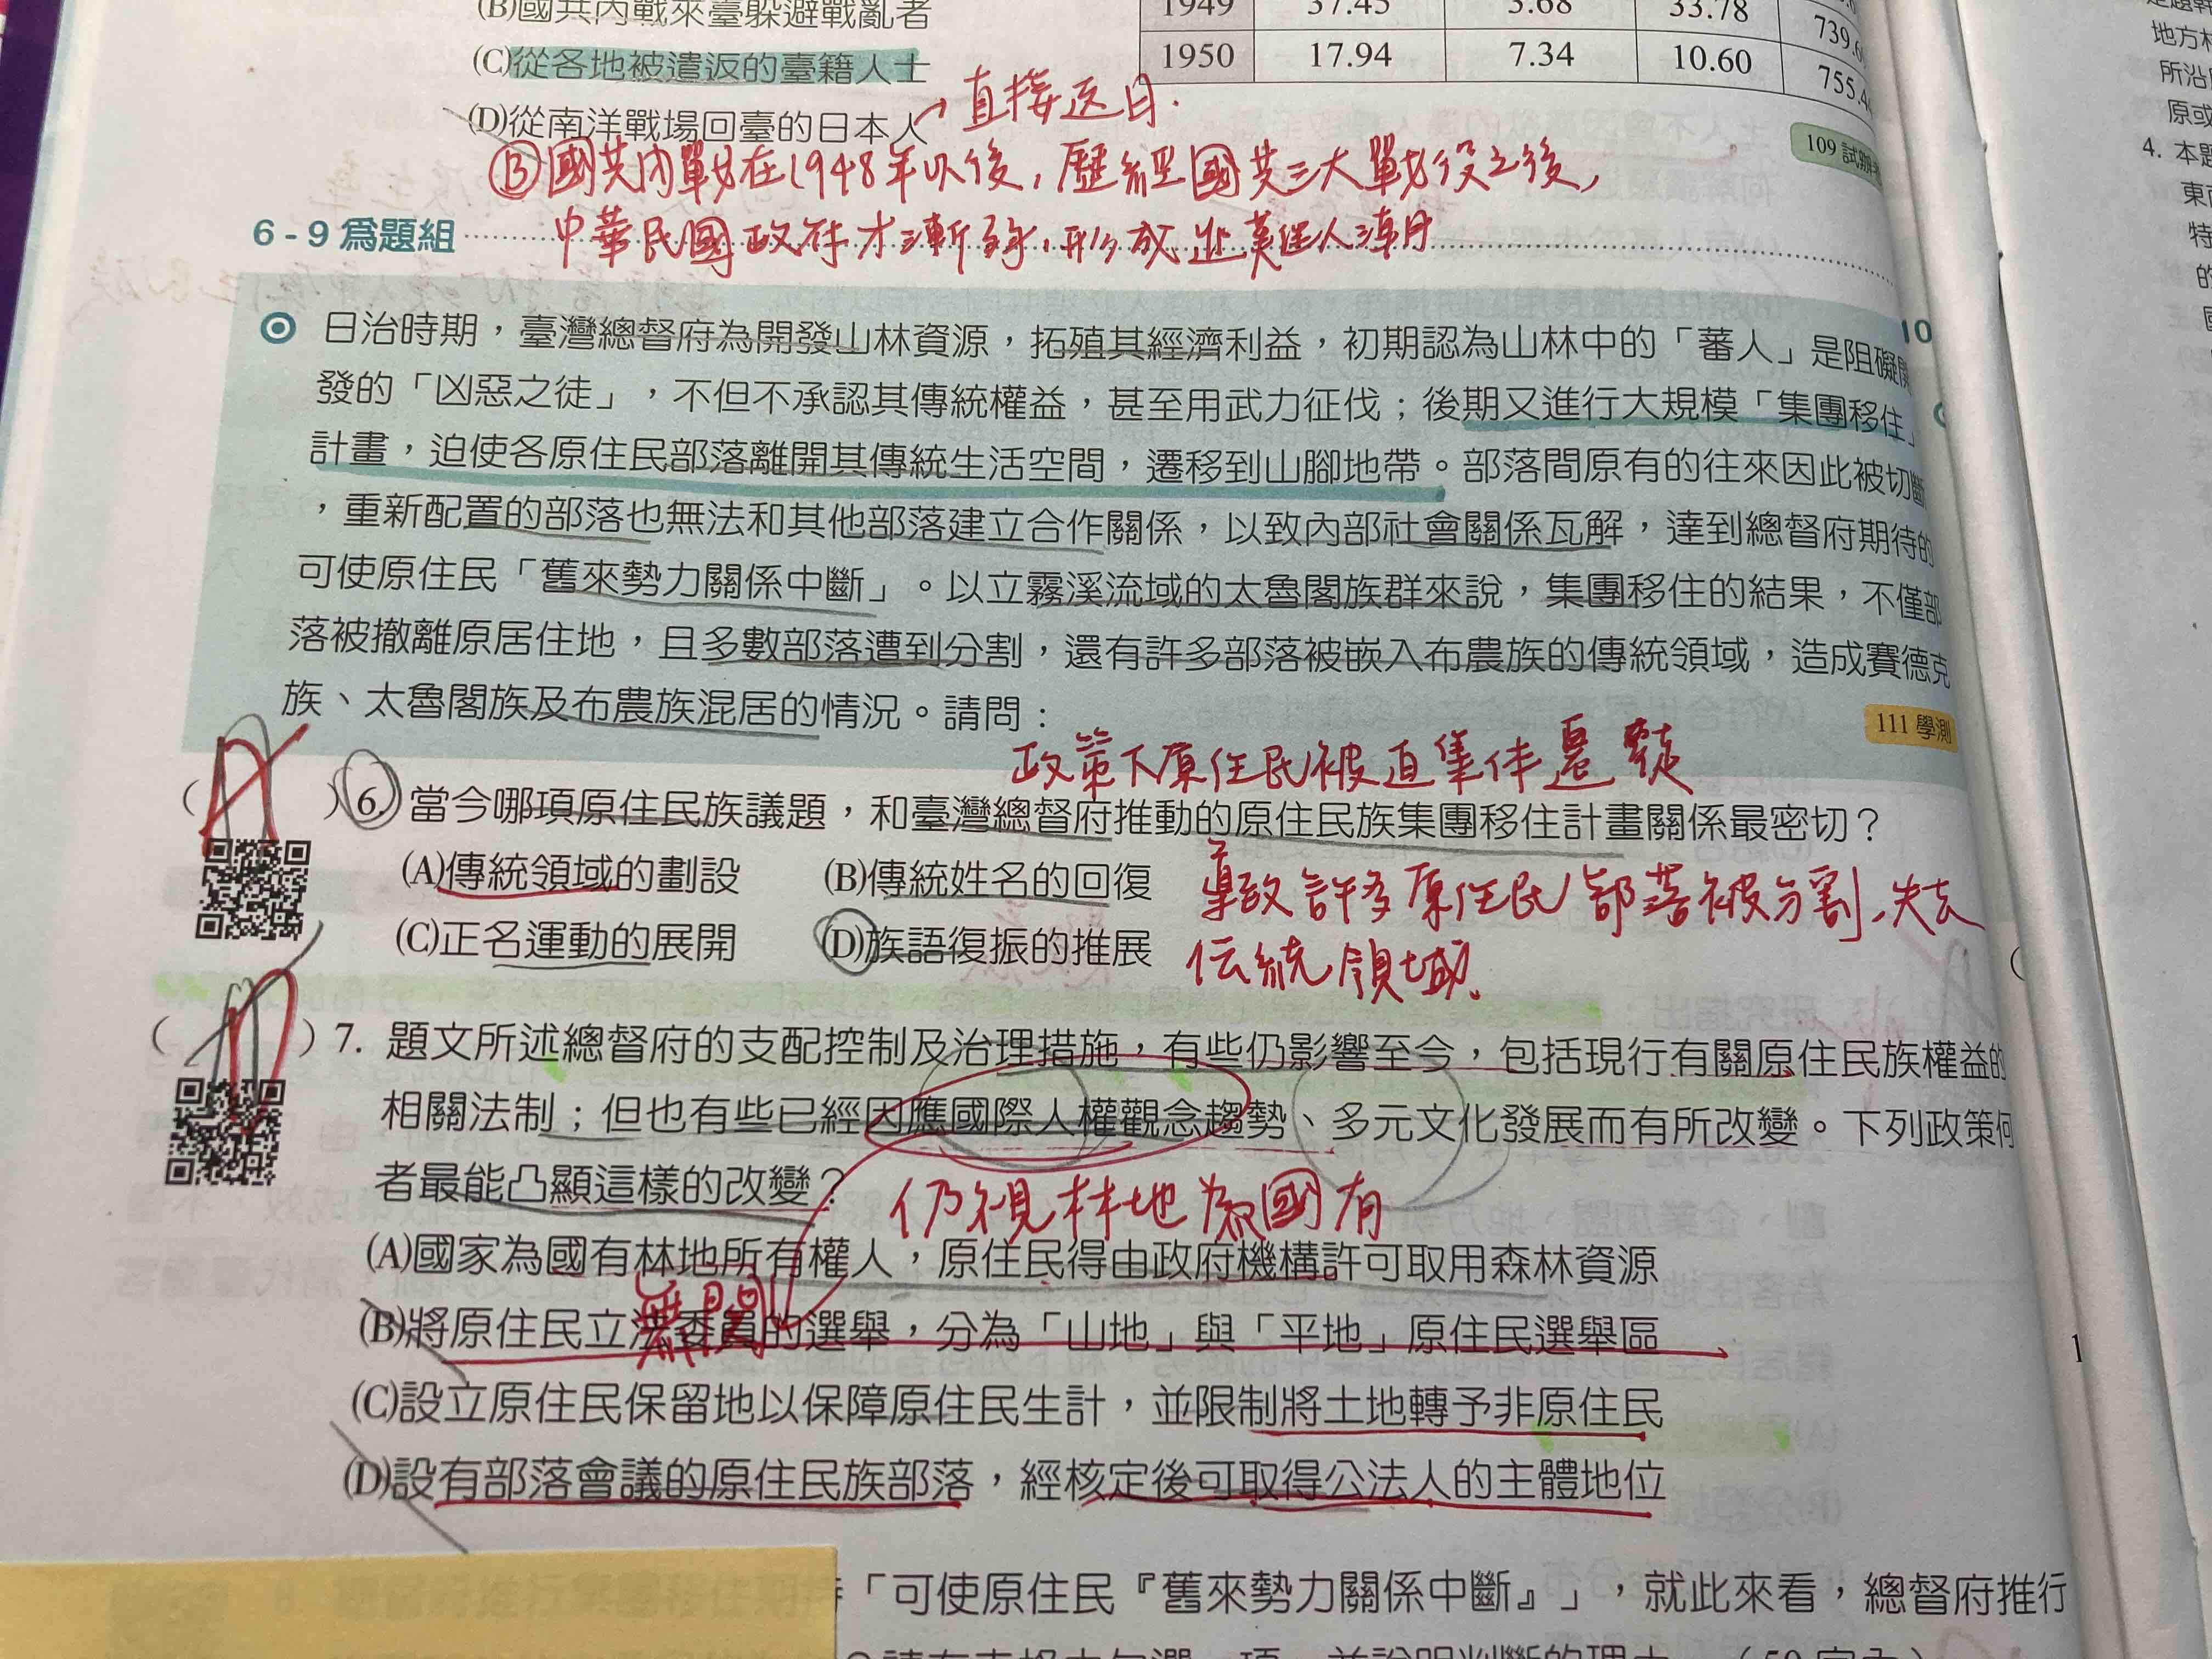 (B)國共內戰來臺躲避戰亂者
(C)從各地被遣返的臺籍人士
(D)從南洋戰場回臺的日本人
直接返日.
1949 37.45 3.68 33.78
1950 17.94 7.34 10.60 755.4
109 試辦
Ⓑ國共內戰在1948年以後,歷經國共三大戰役之後,
中華民國政府才漸
6-9 為題組
日治時期,臺灣總督府為開發山林資源,拓殖其經濟利益,初期認為山林中的「蕃人」是阻礙開
發的「凶惡之徒」,不但不承認其傳統權益,甚至用武力征伐;後期又進行大規模「集團移住」
計畫,迫使各原住民部落離開其傳統生活空間,遷移到山腳地帶。部落間原有的往來因此被切斷
,重新配置的部落也無法和其他部落建立合作關係,以致內部社會關係瓦解,達到總督府期待的
可使原住民「舊來勢力關係中斷」。以立霧溪流域的太魯閣族群來說,集團移住的結果,不僅部
落被撤離原居住地,且多數部落遭到分割,還有許多部落被嵌入布農族的傳統領域,造成賽德克
族、太魯閣族及布農族混居的情況。請問:
111 學測
政策下原住民被迫集体遷徙
( A ) 6. 當今哪項原住民族議題,和臺灣總督府推動的原住民族集團移住計畫關係最密切?
(A)傳統領域的劃設 (B)傳統姓名的回復
(C)正名運動的展開 (D)族語復振的推展
導致許多原住民部落被分割,失去
伝統領域.
( ) 7. 題文所述總督府的支配控制及治理措施,有些仍影響至今,包括現行有關原住民族權益的
相關法制;但也有些已經因應國際人權觀念趨勢、多元文化發展而有所改變。下列政策何
者最能凸顯這樣的改變?
仍視林地為國有
(A)國家為國有林地所有權人,原住民得由政府機構許可取用森林資源
無關
(B)將原住民立法委員的選舉,分為「山地」與「平地」原住民選舉區
(C)設立原住民保留地以保障原住民生計,並限制將土地轉予非原住民
(D)設有部落會議的原住民族部落,經核定後可取得公法人的主體地位
「可使原住民『舊來勢力關係中斷』」,就此來看,總督府推行